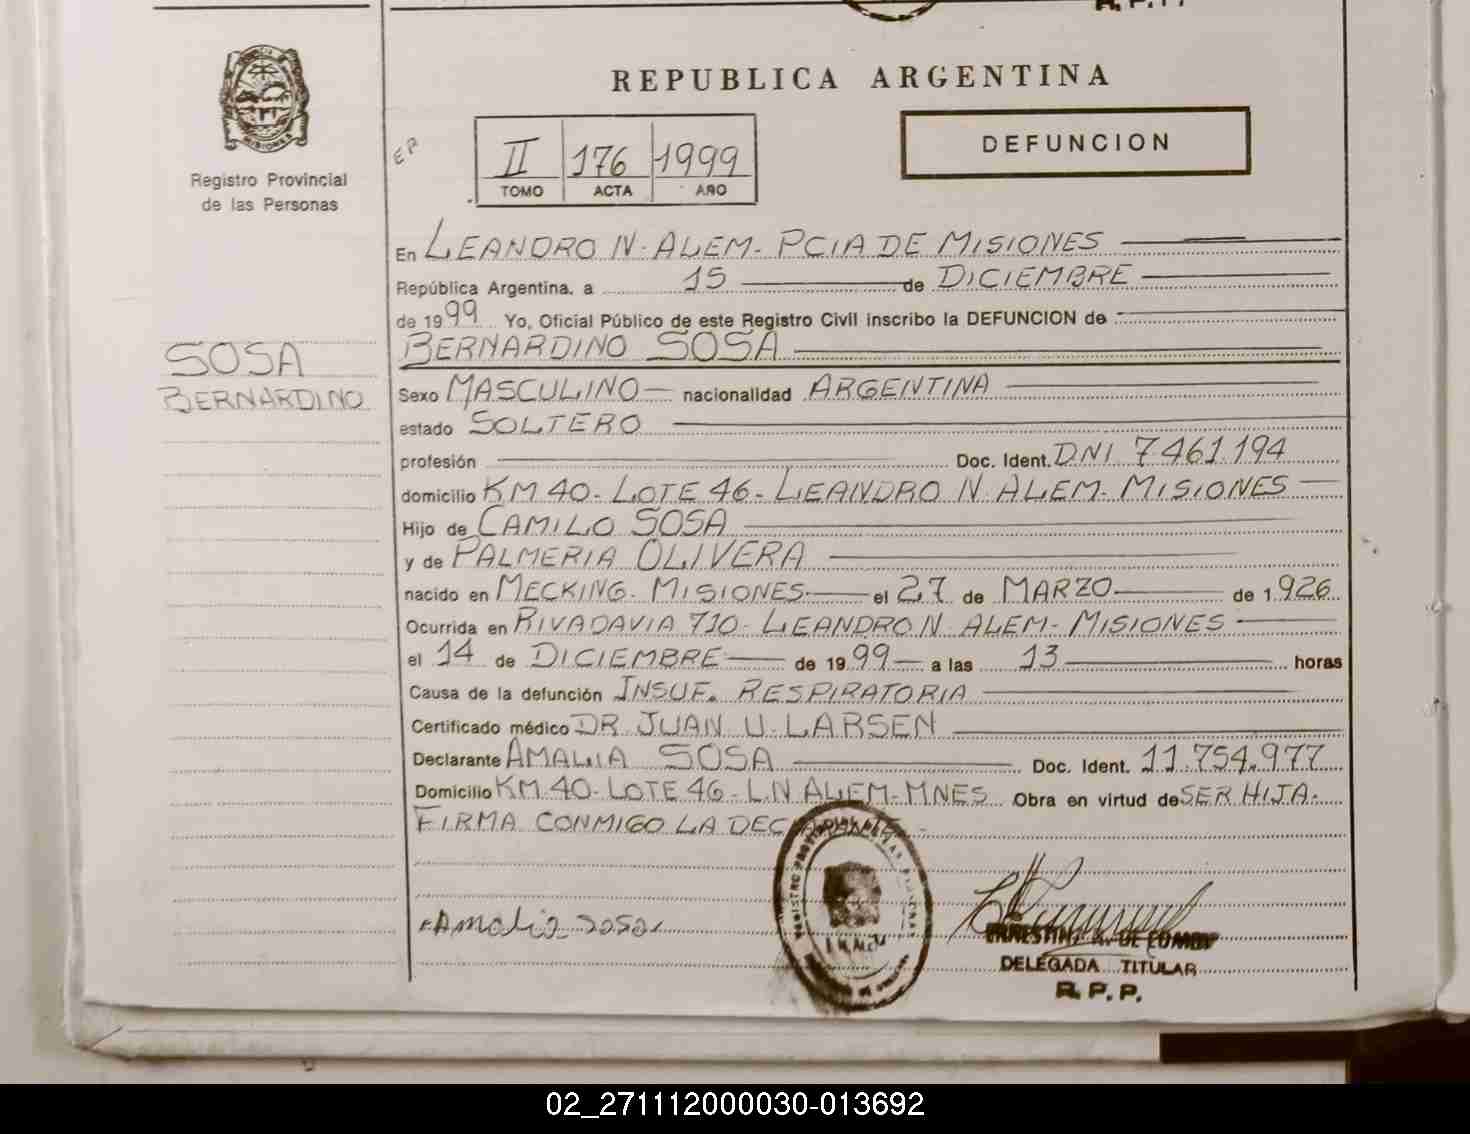 R.P.P.
REPUBLICA ARGENTINA
MISIONES
Registro Provincial
de las Personas
EP
II 176 1999
TOMO ACTA AÑO
DEFUNCION
En LEANDRO N. ALEM - PCIA DE MISIONES
República Argentina, a 15 de DICIEMBRE
de 1999 Yo, Oficial Público de este Registro Civil inscribo la DEFUNCION de
BERNARDINO SOSA
SOSA
BERNARDINO
Sexo MASCULINO nacionalidad ARGENTINA
estado SOLTERO
profesión Doc. Ident. DNI 7461194
domicilio KM 40 - LOTE 46 - LEANDRO N ALEM - MISIONES
Hijo de CAMILO SOSA
y de PALMERIA OLIVERA
nacido en MECKING - MISIONES el 27 de MARZO de 1926
Ocurrida en RIVADAVIA 710 - LEANDRO N. ALEM - MISIONES
el 14 de DICIEMBRE de 1999 a las 13 horas
Causa de la defunción INSUF. RESPIRATORIA
Certificado médico DR JUAN U. LARSEN
Declarante AMALIA SOSA Doc. Ident. 11.754.977
Domicilio KM 40 - LOTE 46 - L.N ALEM - MNES Obra en virtud de SER HIJA.
FIRMA CONMIGO LA DECLARANTE.
Amalia sosa
DELEGADA TITULAR
R.P.P.
02_271112000030-013692